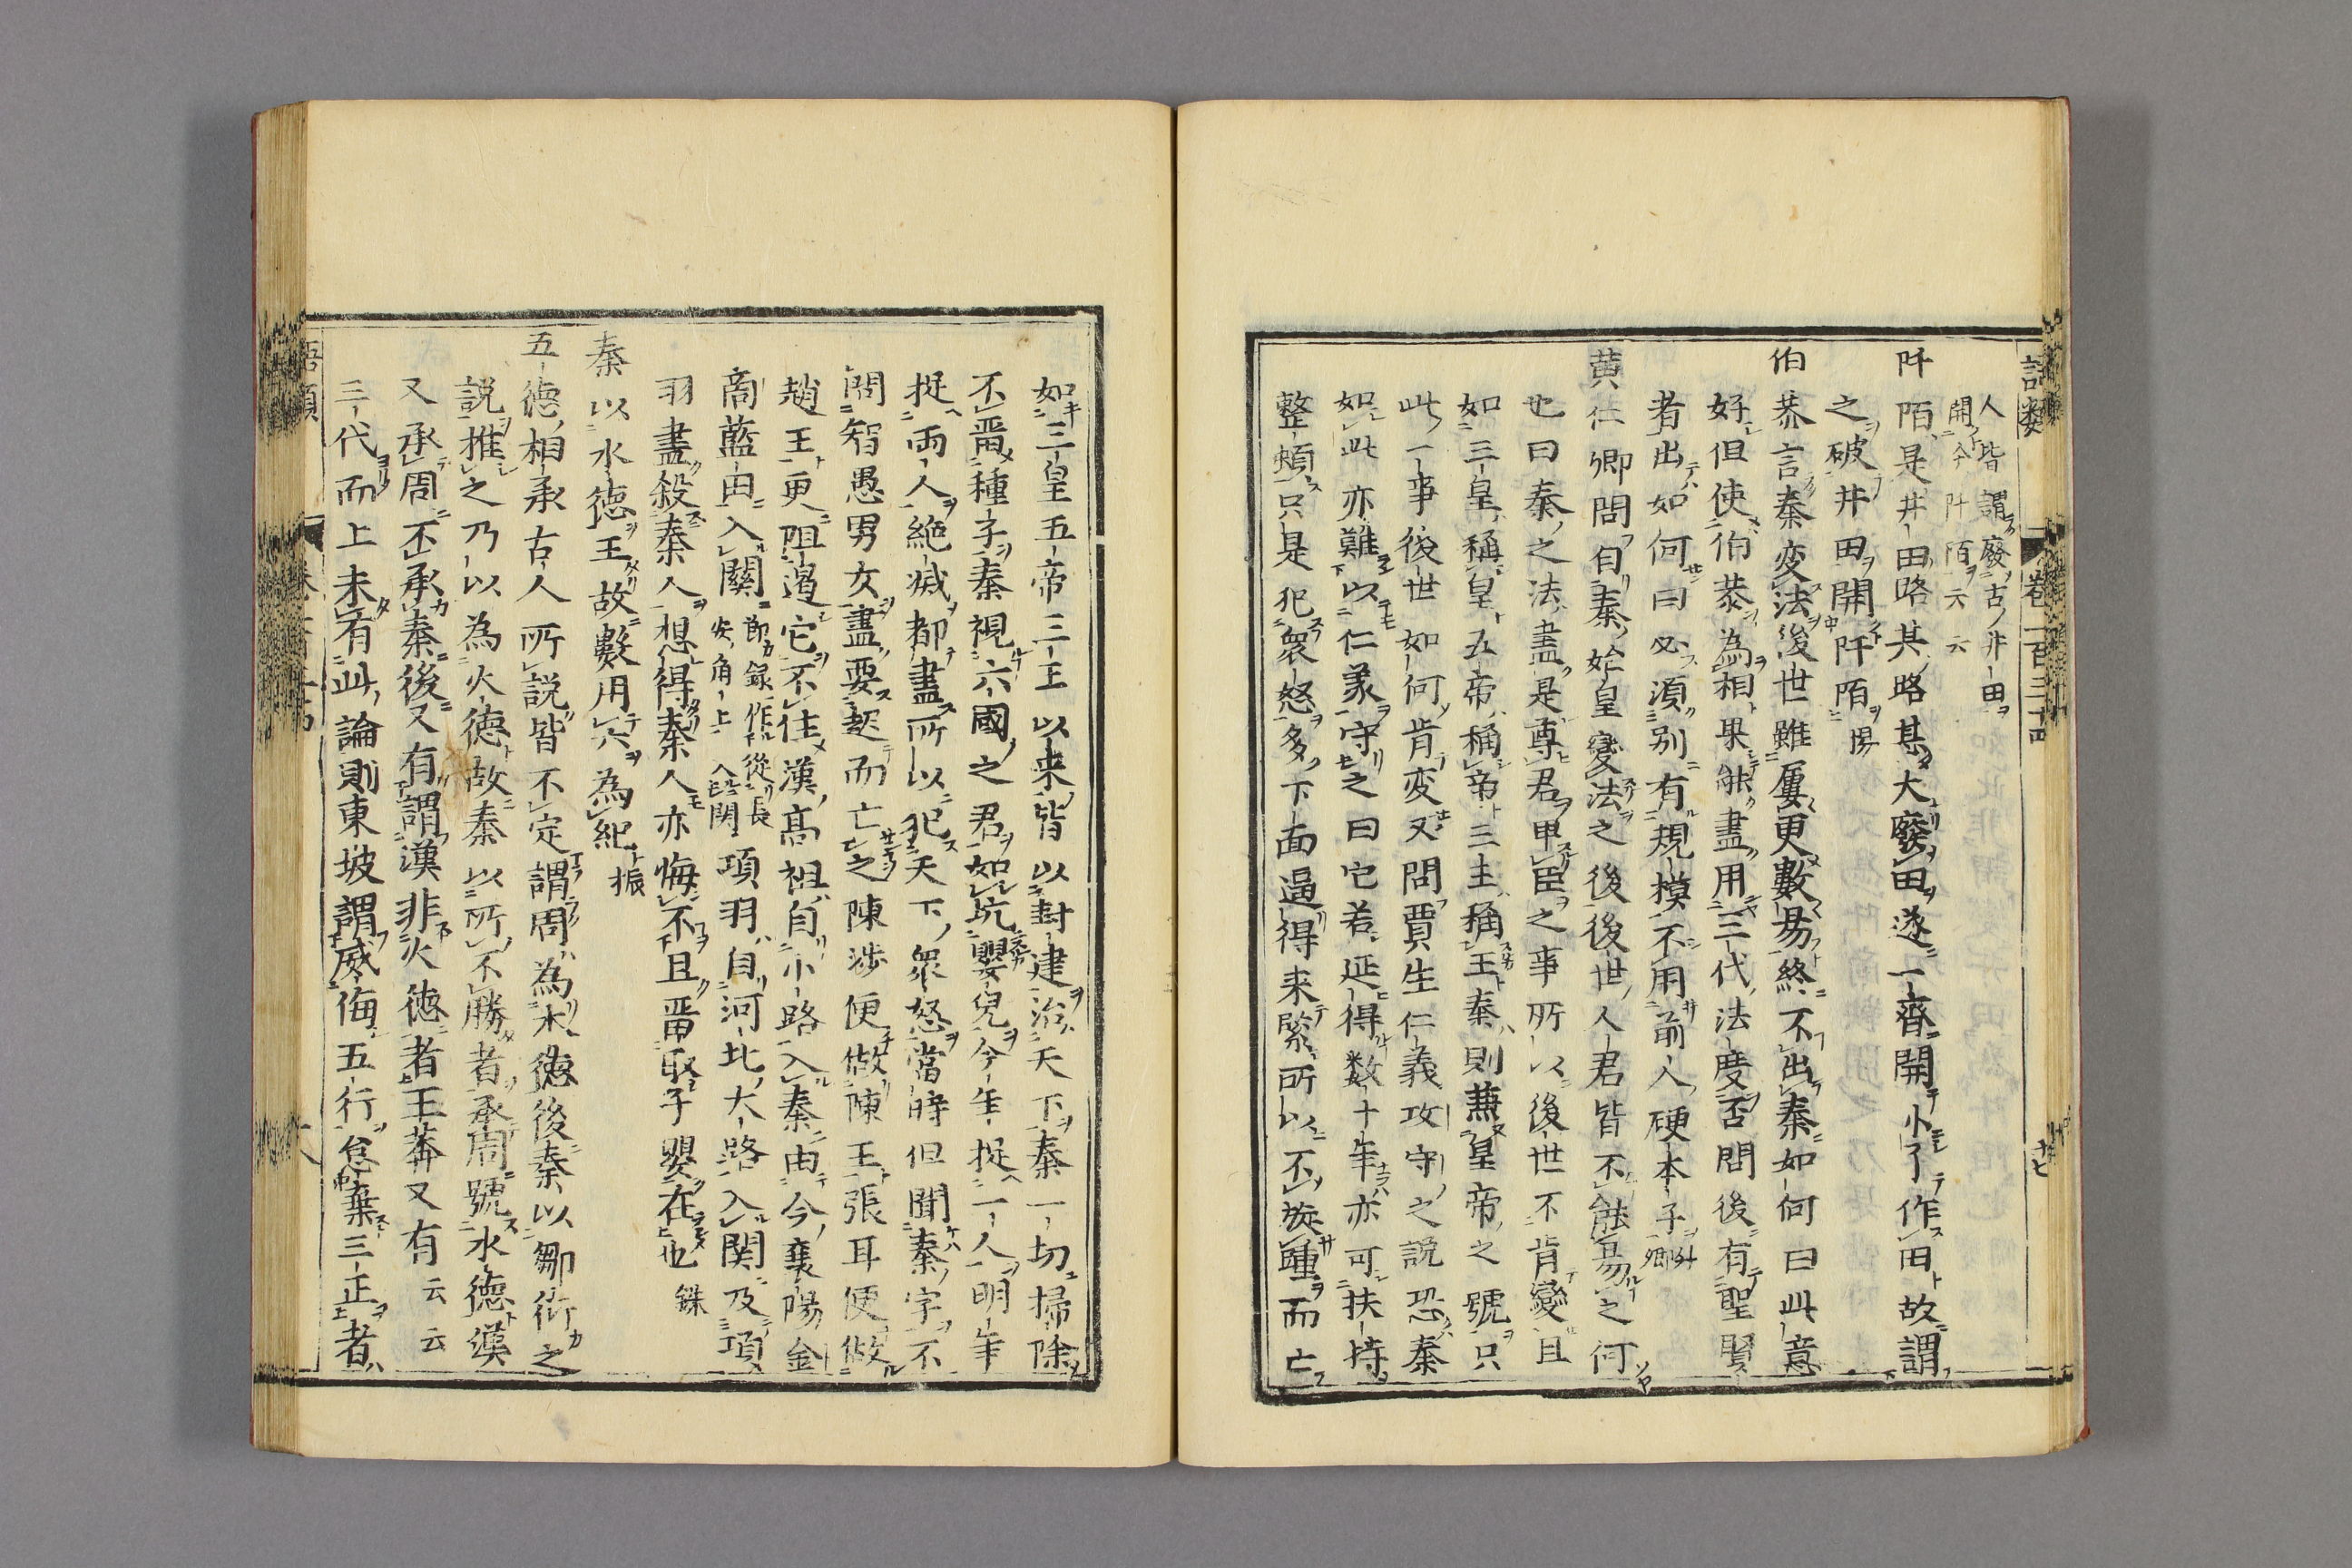 語類 卷一百三十四 十七
人皆謂廢古井田
開今阡陌云云
阡陌是井田路其路甚大廢田遂一齊開小了作田故謂
之破井田開阡陌昜
伯恭言秦変法後世雖屢更數易終不出秦如何曰此意
好但使伯恭為相果能盡用三代法度否問後有聖賢
者出如何曰必須別有規模不用前人硬本子卿
黄仁卿問自秦始皇變法之後後世人君皆不能易之何
也曰秦之法盡是尊君卑臣之事所以後世不肯變且
如三皇稱皇五帝稱帝三王稱王秦則兼皇帝之號只
此一事後世如何肯変又問賈生仁義攻守之説恐秦
如此亦難以仁義守之曰它若延得数十年亦可扶持
整頓只是犯衆怒多下面逼得来緊所以不旋踵而亡
如三皇五帝三王以来皆以封建治天下秦一切掃除
不畱種子秦視六國之君如坑嬰兒今年捉一人明年
捉両人絶滅都盡所以犯天下衆怒當時但聞秦字不
問智愚男女盡要起而亡之陳渉便做陳王張耳便做
趙王更阻遏它不住漢高祖自小路入秦由今襄陽金
商藍田入關節録作從長
安角上入関項羽自河北大路入関及項
羽盡殺秦人想得秦人亦悔不且畱取子嬰在也 銖
秦以水德王故數用六為紀 振
五德相承古人所説皆不定謂周為木德後秦以鄒衍之
説推之乃以為火德故秦以所不勝者承周號水德漢
又承周不承秦後又有謂漢非火德者王莽又有云云
三代而上未有此論則東坡謂威侮五行怠棄三正者
語類